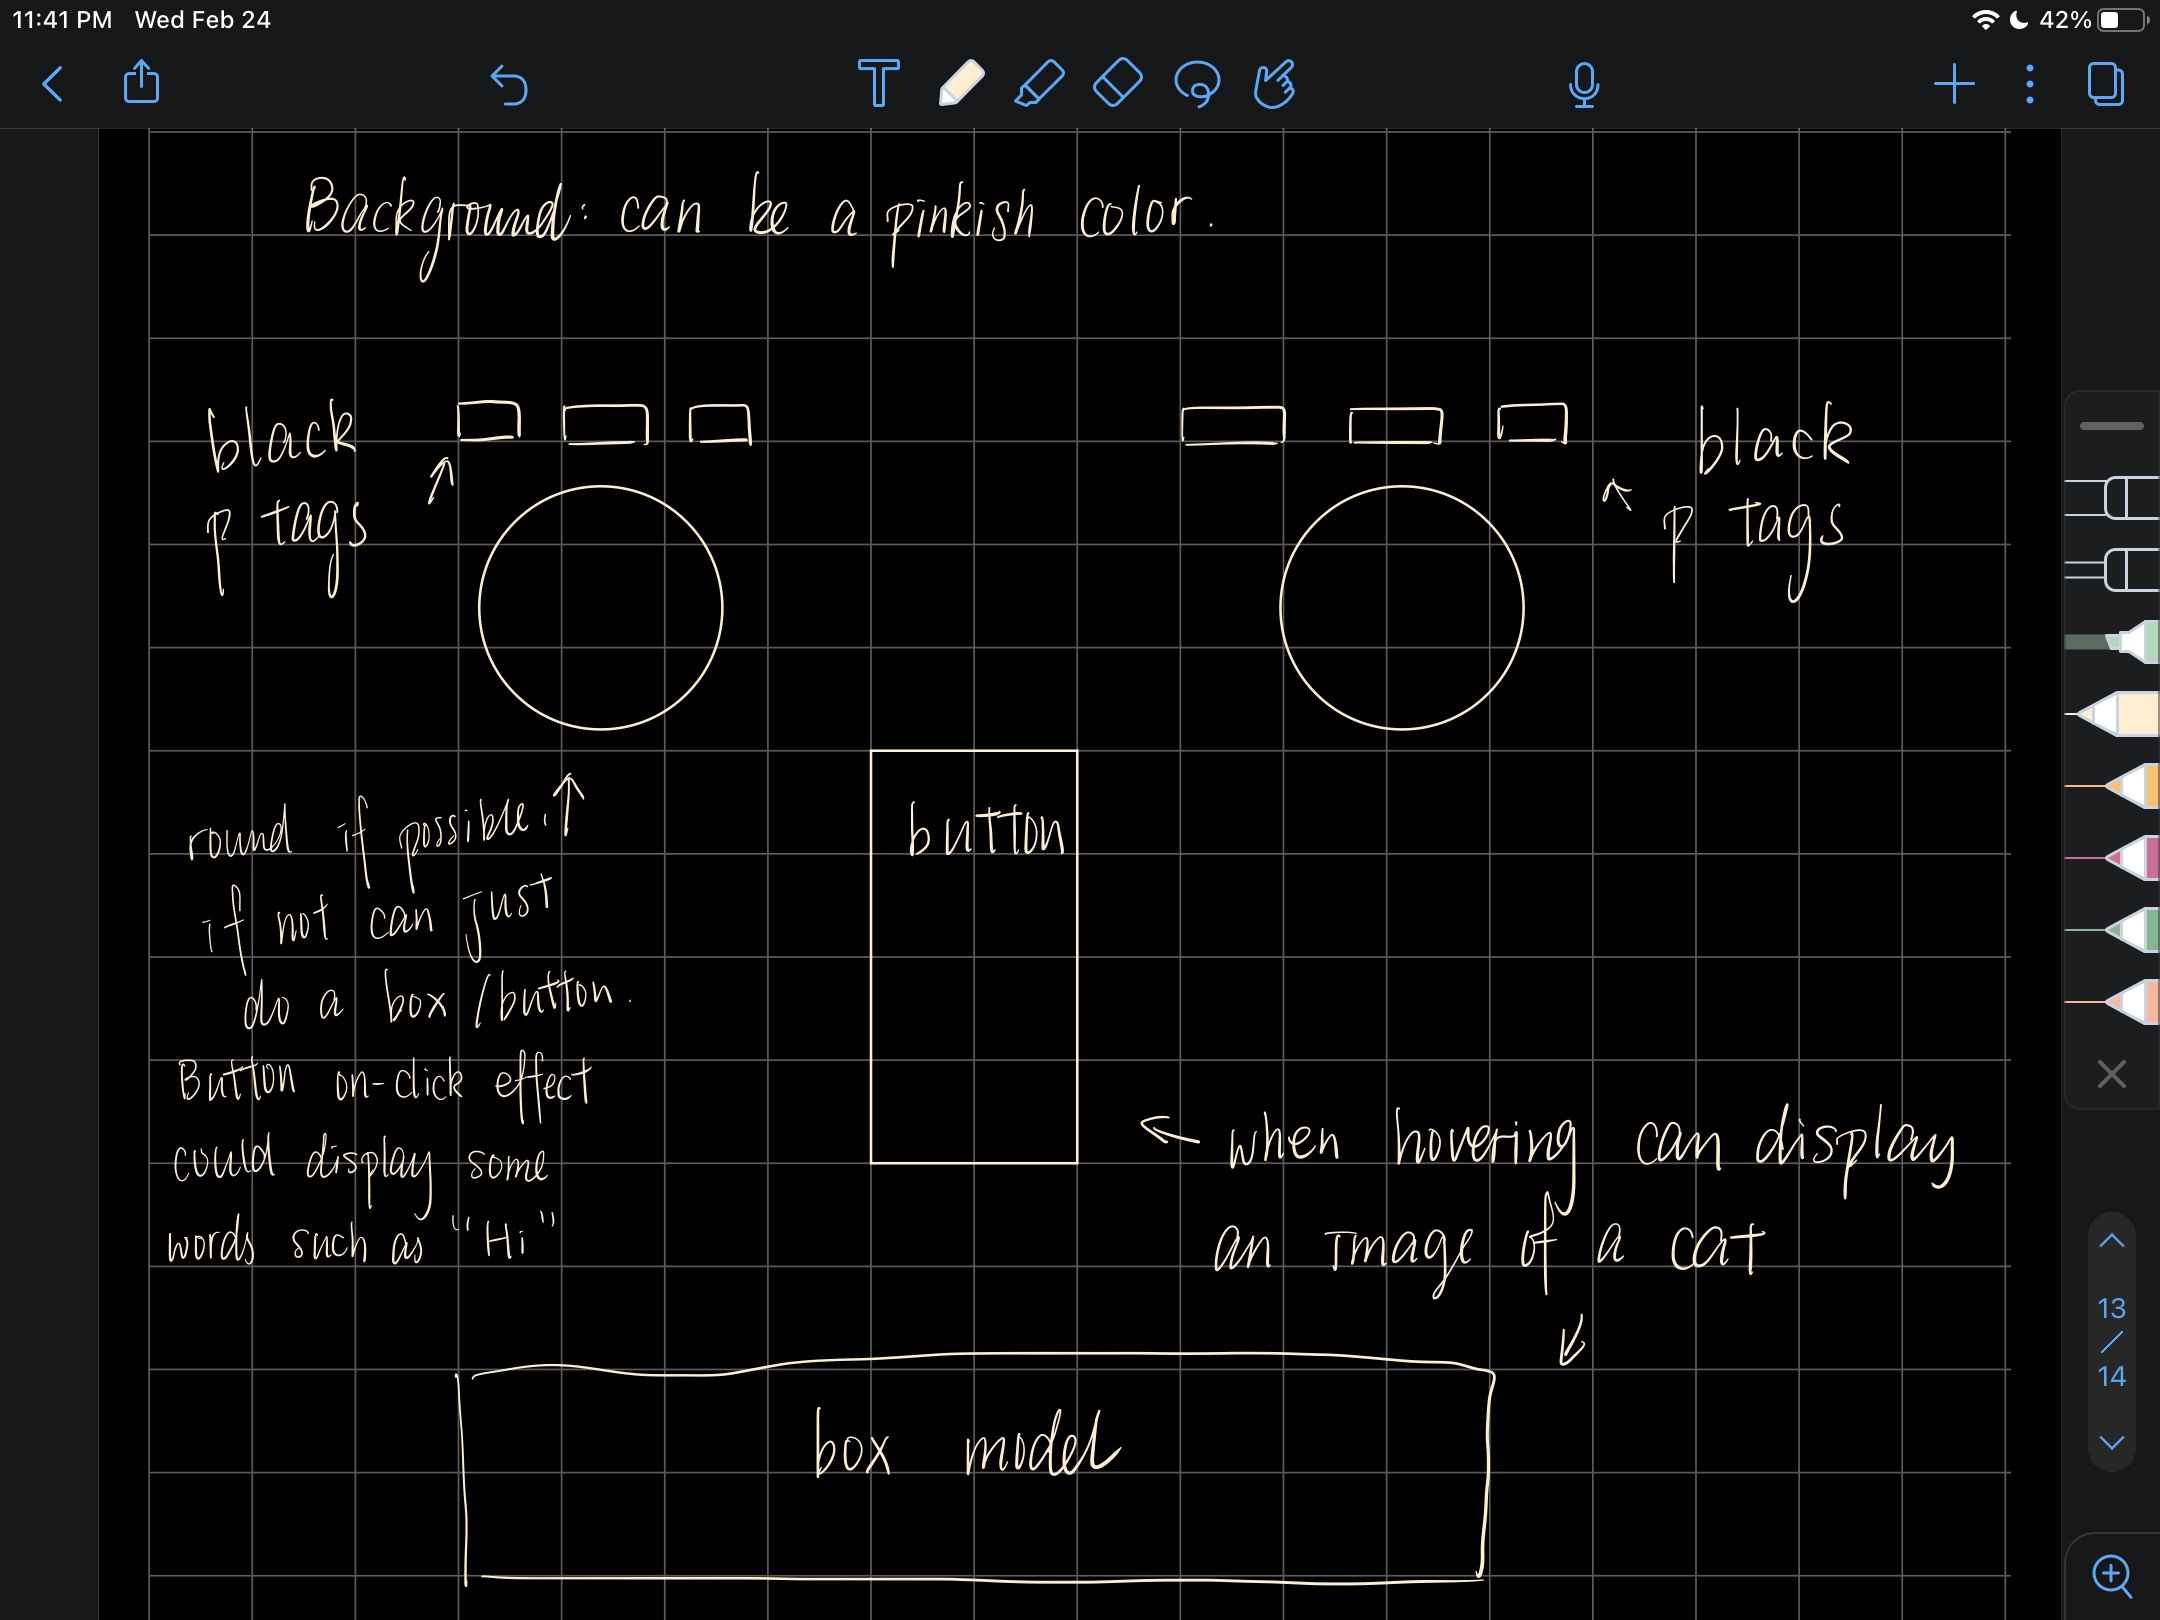 11:41 PM Wed Feb 24
42%
Background: can be a pinkish color.
black
p tags
black
p tags
round if possible.
if not can just
do a box / button.
Button on-click effect
could display some
words such as "Hi"
button
when hovering can display
an image of a cat
box model
13
/
14